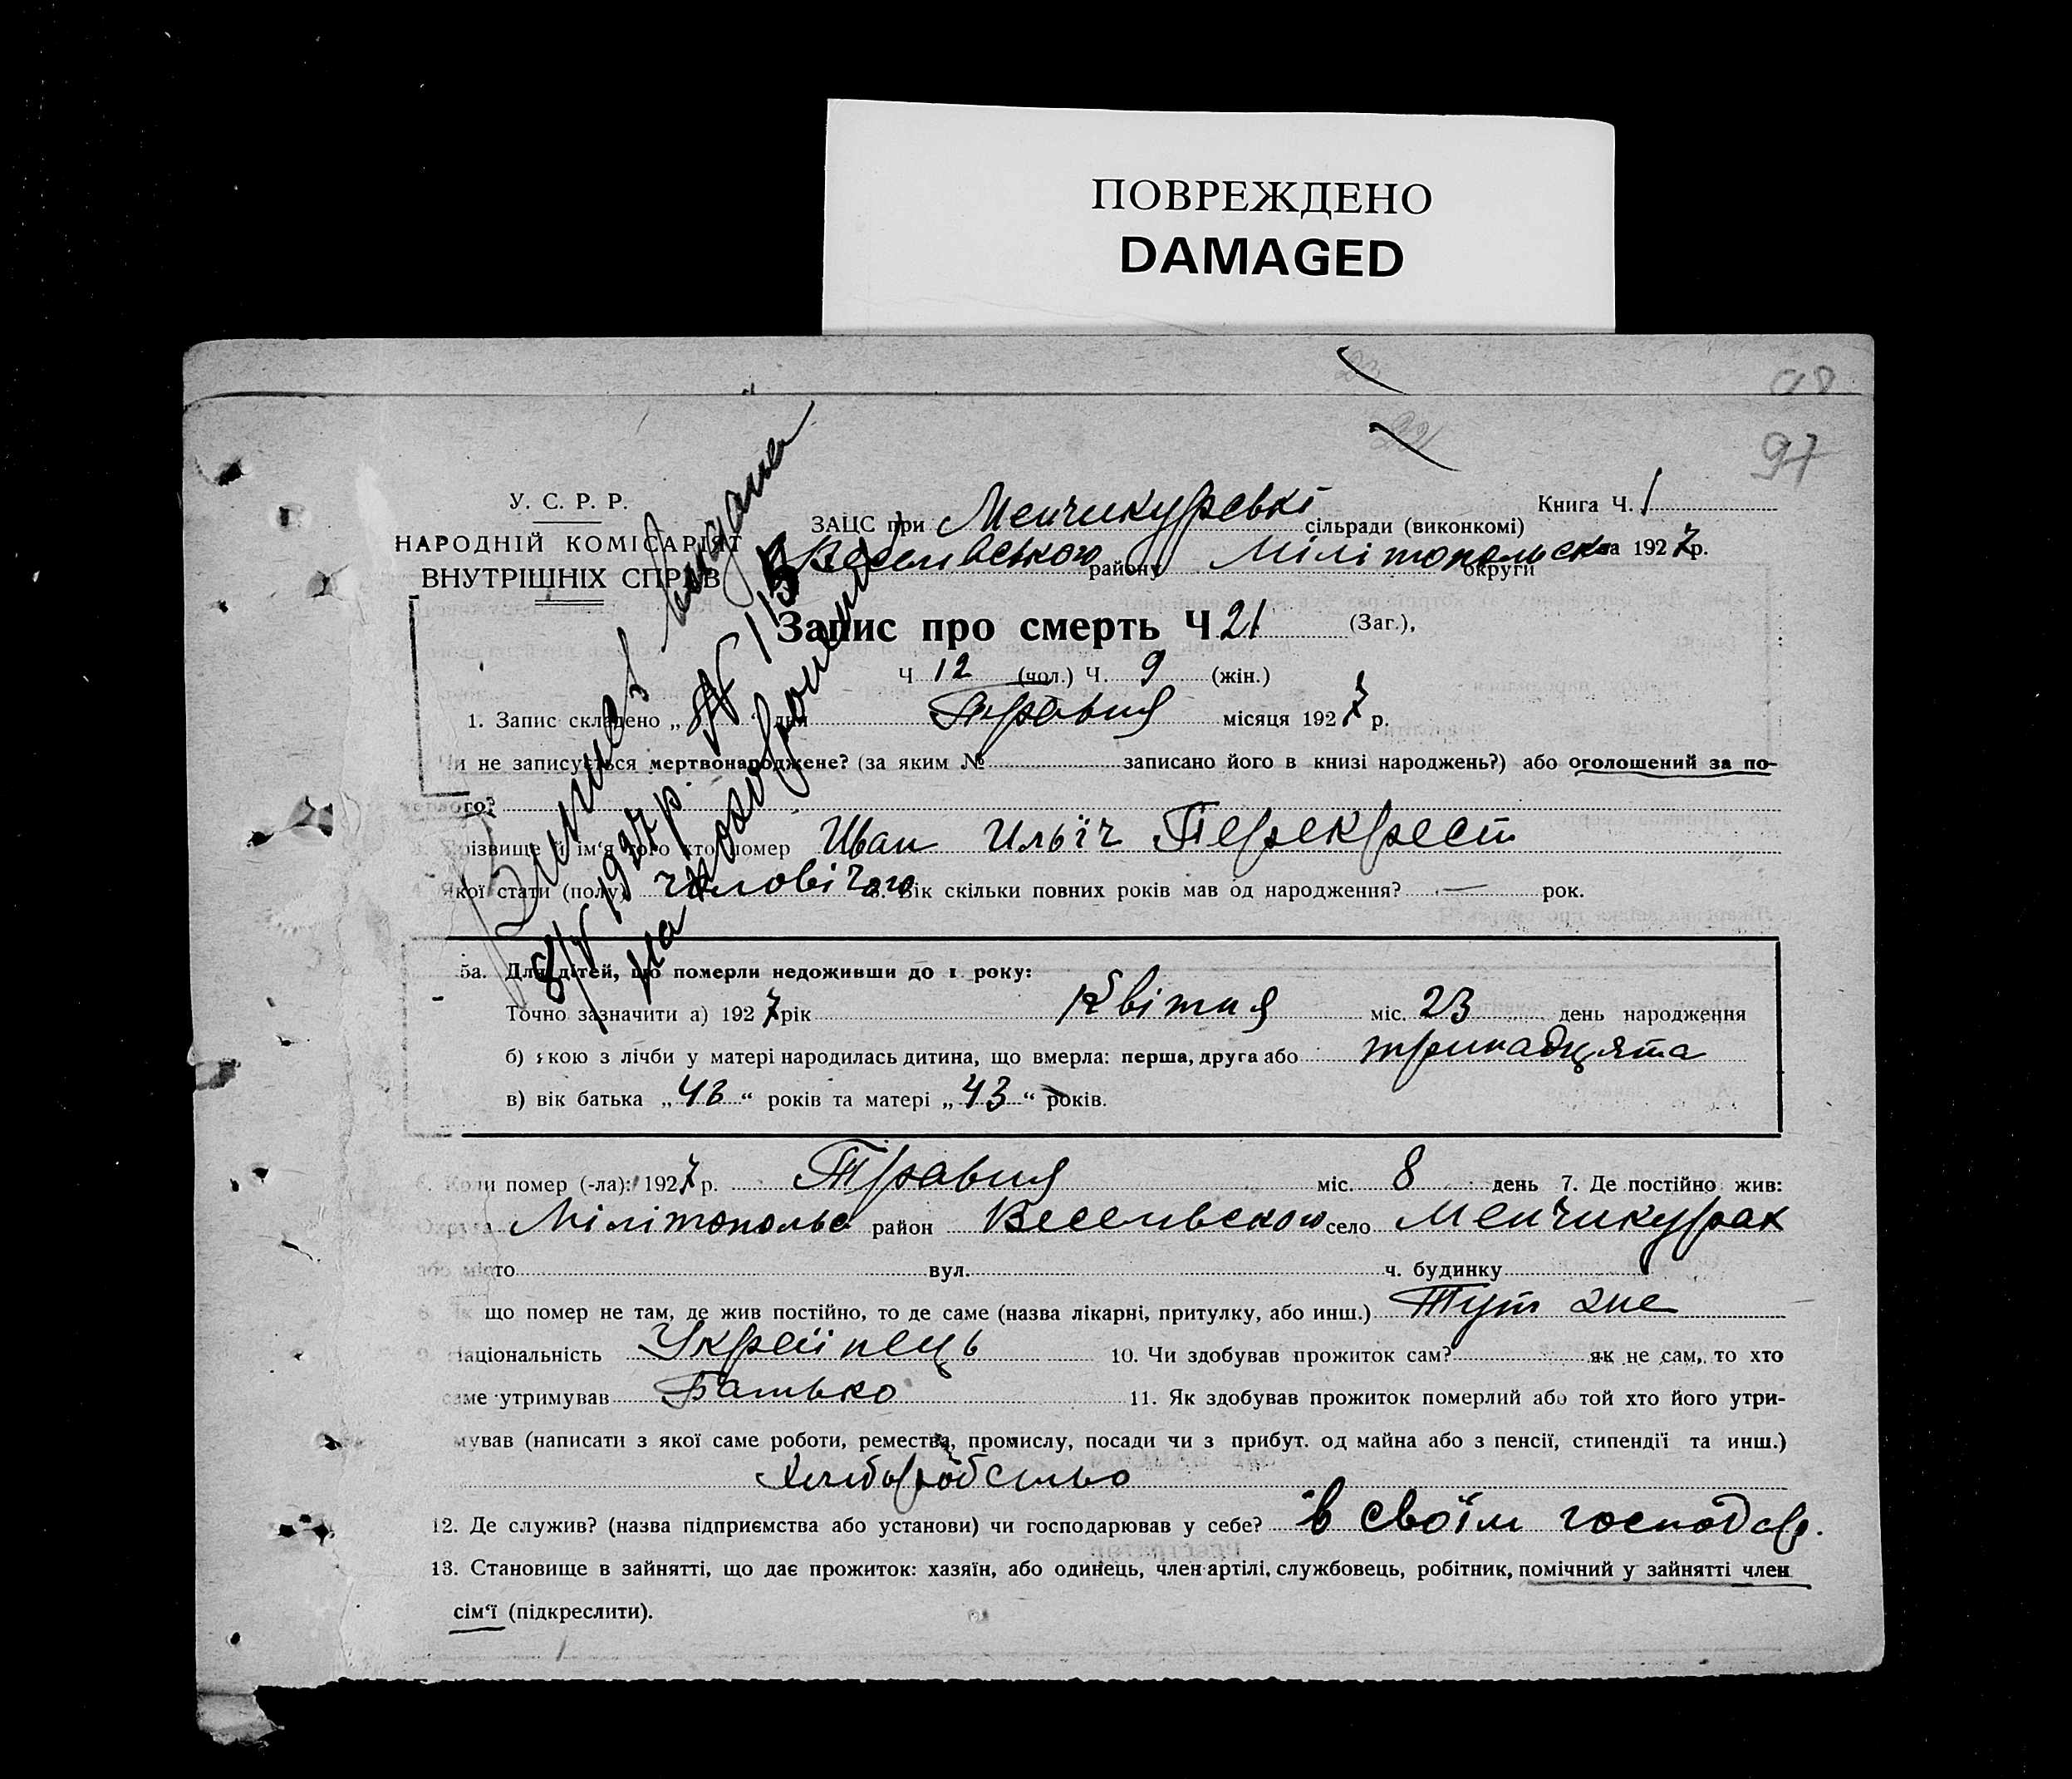 ПОВРЕЖДЕНО
DAMAGED
98
97
У. С. Р. Р.
НАРОДНІЙ КОМІСАРІЯТ
ВНУТРІШНІХ СПРАВ
Книга Ч. 1
ЗАЦС при Менчикурсвкі сільради (виконкомі)
Веселівського району Мілітопольск округи на 1927 р.
Випис видана
8/V 1927 р. № 113
на похорошени
Запис про смерть Ч 21 (Заг.),
Ч 12 (чол.) Ч. 9 (жін.)
1. Запис складено „ 8 “ дня Травня місяця 1927 р.
Чи не записується мертвонароджене? (за яким № записано його в книзі народжень?) або оголошений за по-
го?
різвище й ім'я того хто помер Иван Ильїч Перекрест
Якої стати (полу) чоловічого 5. Вік скільки повних років мав од народження? — рок.
5а. Для дітей, що померли недоживши до 1 року:
Точно зазначити а) 1927 рік Квітня міс. 23 день народження
б) якою з лічби у матері народилась дитина, що вмерла: перша, друга або тринадцята
в) вік батька „ 43 “ років та матері „ 43 “ років.
6. Коли помер (-ла): 1927 р. Травня міс. 8 день 7. Де постійно жив:
Округа Мілітопольс район Веселивского село Менчикурах
або місто вул. ч. будинку
8. Як що помер не там, де жив постійно, то де саме (назва лікарні, притулку, або инш.) Тут же
9. Національність Украйнець 10. Чи здобував прожиток сам? як не сам, то хто
саме утримував Батько 11. Як здобував прожиток померлий або той хто його утри-
мував (написати з якої саме роботи, ремества, промислу, посади чи з прибут. од майна або з пенсії, стипендії та инш.)
Хлиборобство
12. Де служив? (назва підприємства або установи) чи господарював у себе? в своїм господар.
13. Становище в зайнятті, що дає прожиток: хазяїн, або одинець, член артілі, службовець, робітник, помічний у зайнятті член
сім'ї (підкреслити).